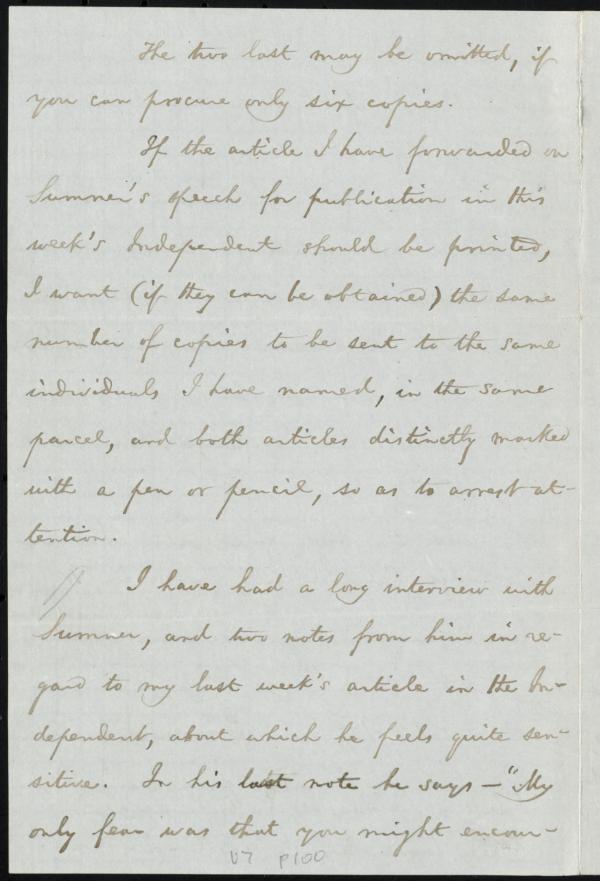 The two last may be omitted, if
you can procure only six copies.
If the article I have forwarded on
Sumner's speech for publication in this
week's Independent should be printed,
I want (if they can be obtained) the same
number of copies to be sent to the same
individuals I have named, in the same
parcel, and both articles distinctly marked
with a pen or pencil, so as to arrest at-
tention.
I have had a long interview with
Sumner, and two notes from him in re-
gard to my last week's article in the In-
dependent, about which he feels quite sen-
sitive. In his last note he says — "My
only fear was that you might encour-
V7 p100